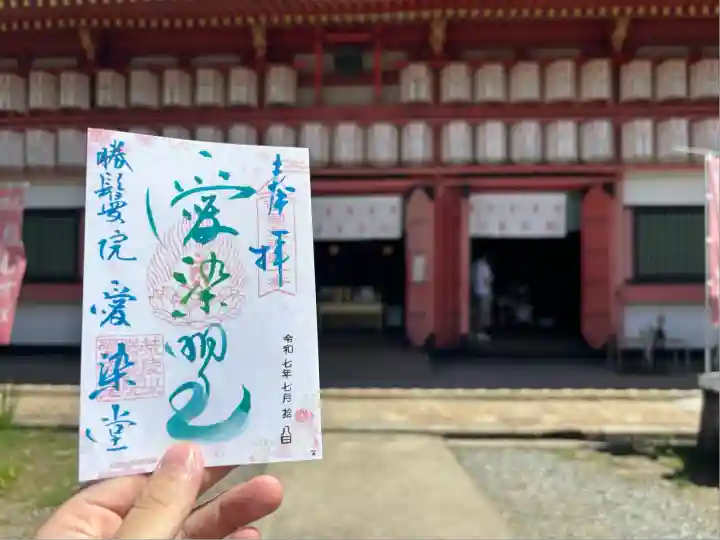 奉拝
愛染明王
勝鬘院 愛染堂
令和七年七月拾八日